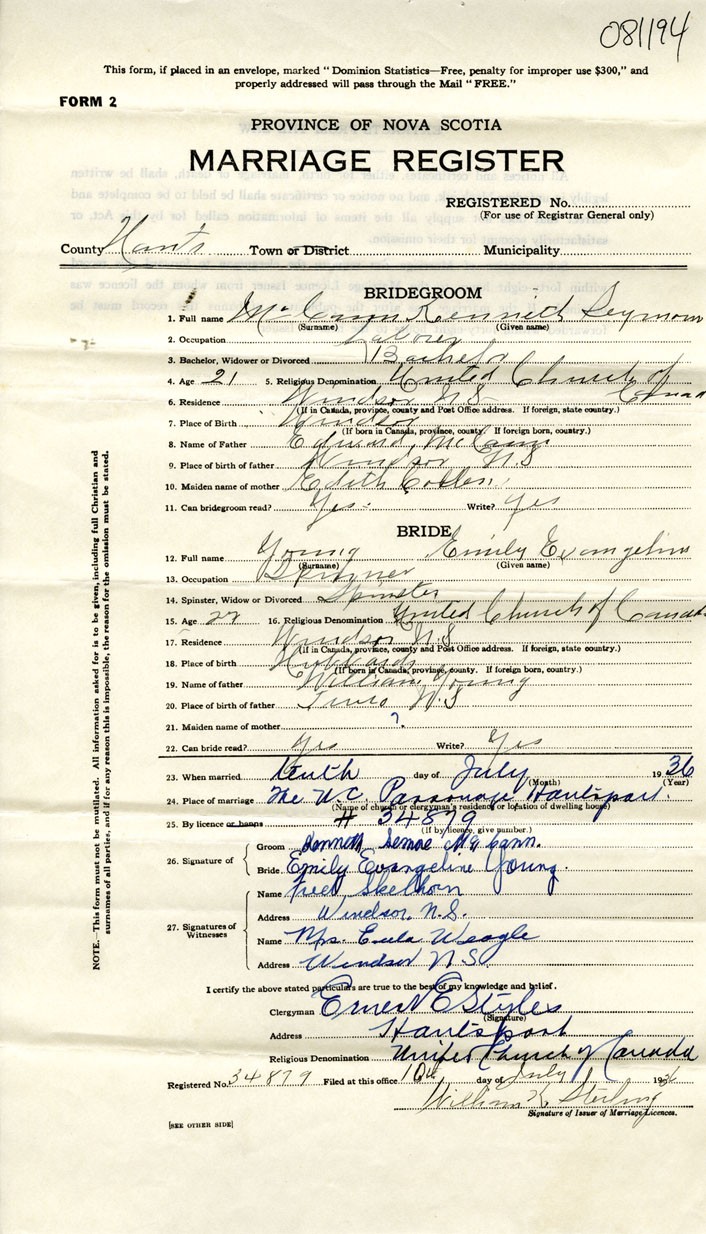 081194
This form, if placed in an envelope, marked "Dominion Statistics—Free, penalty for improper use $300," and
properly addressed will pass through the Mail "FREE."
FORM 2
PROVINCE OF NOVA SCOTIA
MARRIAGE REGISTER
REGISTERED No.
(For use of Registrar General only)
County Hants Town or District Municipality
BRIDEGROOM
1. Full name McCann Kenneth Seymour
(Surname) (Given name)
2. Occupation Laborer
3. Bachelor, Widower or Divorced Bachelor
4. Age 21 5. Religious Denomination United Church of Canada
6. Residence Windsor N.S
(If in Canada, province, county and Post Office address. If foreign, state country.)
7. Place of Birth Windsor
(If born in Canada, province, county. If foreign born, country.)
8. Name of Father Edward McCann
9. Place of birth of father Windsor N.S
10. Maiden name of mother Edith
11. Can bridegroom read? Yes Write? Yes
BRIDE
12. Full name Young Emily Evangeline
(Surname) (Given name)
13. Occupation Spinner
14. Spinster, Widow or Divorced Spinster
15. Age 22 16. Religious Denomination United Church of Canada
17. Residence Windsor N.S
(If in Canada, province, county and Post Office address. If foreign, state country.)
18. Place of birth Hubbards
(If born in Canada, province, county. If foreign born, country.)
19. Name of father William Young
20. Place of birth of father Truro N.S
21. Maiden name of mother ?
22. Can bride read? Yes Write? Yes
23. When married tenth day of July 1936
(Month) (Year)
24. Place of marriage The U.C. Parsonage Hantsport.
(Name of church or clergyman's residence or location of dwelling house)
25. By licence or banns # 34879
(If by licence, give number.)
26. Signature of Groom Kenneth McCann.
Bride Emily Evangeline Young.
27. Signatures of Witnesses Name Fred Skelhorn
Address Windsor, N.S.
Name Mrs. Eula Weagle
Address Windsor N.S.
I certify the above stated particulars are true to the best of my knowledge and belief.
Clergyman Ernest E Styles
(Signature)
Address Hantsport
Religious Denomination United Church of Canada
Registered No. 34879 Filed at this office 10th day of July 1936
William K Sterling
Signature of Issuer of Marriage Licences.
[SEE OTHER SIDE]
NOTE.—This form must not be mutilated. All information asked for is to be given, including full Christian and
surnames of all parties, and if for any reason this is impossible, the reason for the omission must be stated.